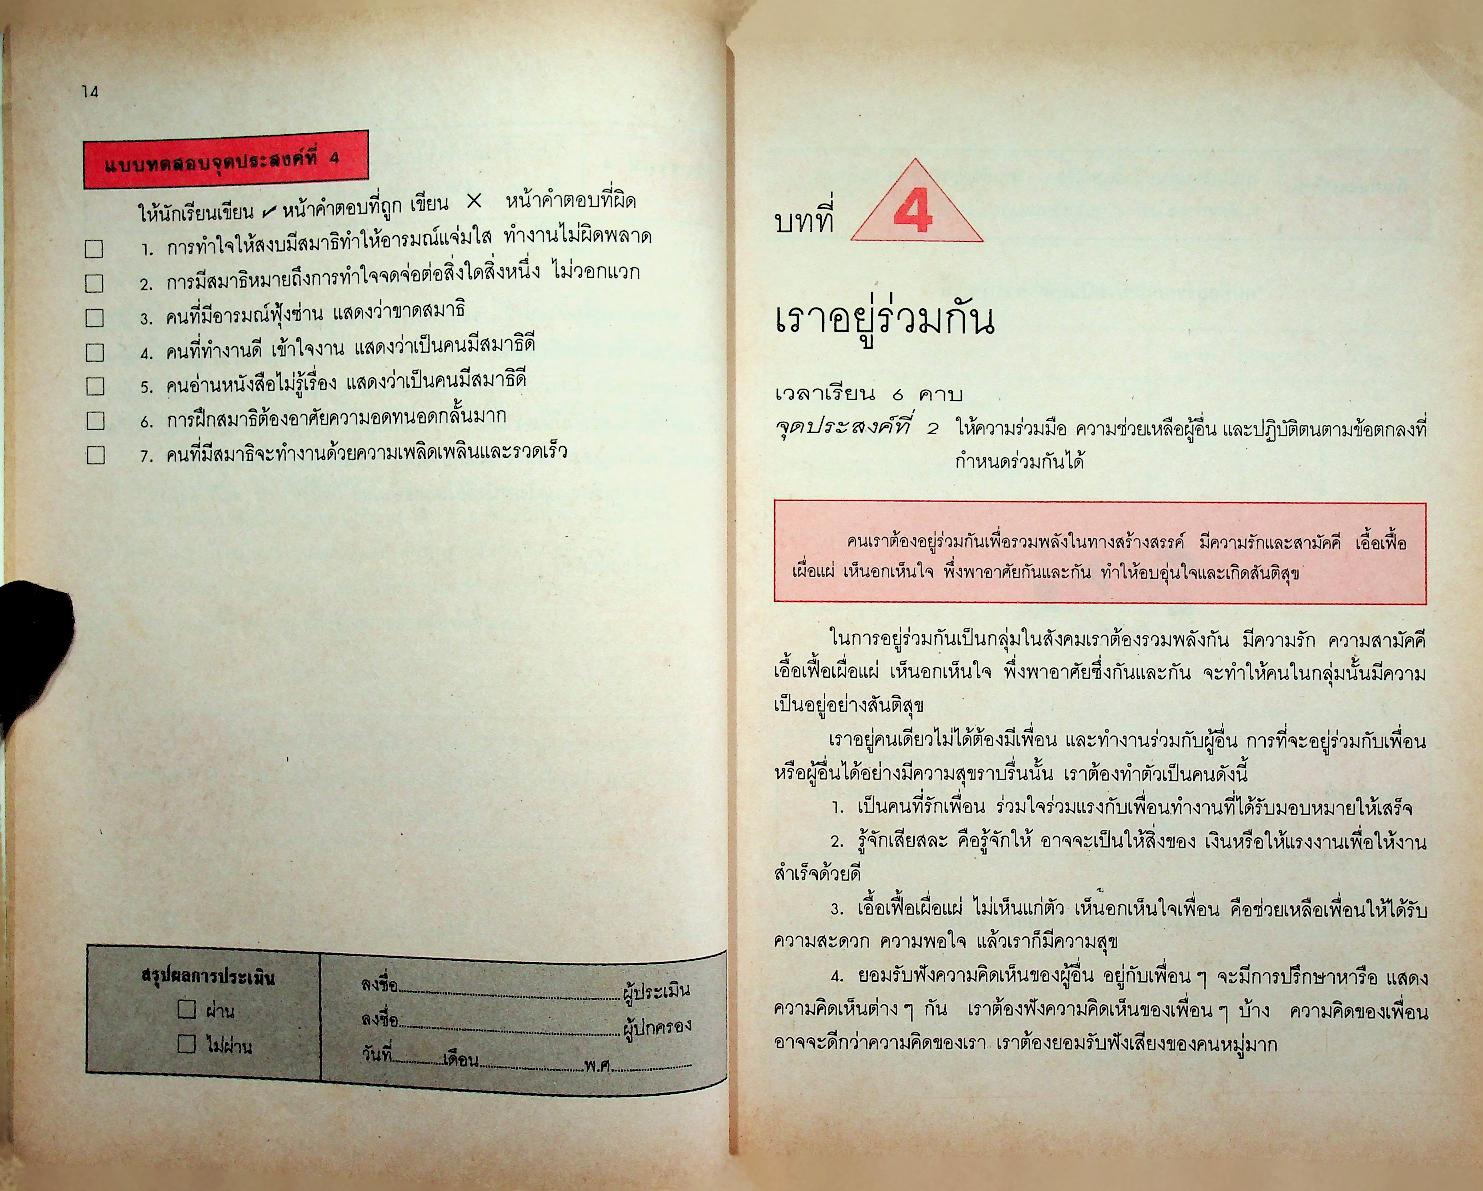 14
แบบทดสอบจุดประสงค์ที่ 4
ให้นักเรียนเขียน ✓ หน้าคำตอบที่ถูก เขียน × หน้าคำตอบที่ผิด
1. การทำใจให้สงบมีสมาธิทำให้อารมณ์แจ่มใส ทำงานไม่ผิดพลาด
2. การมีสมาธิหมายถึงการทำใจจดจ่อต่อสิ่งใดสิ่งหนึ่ง ไม่วอกแวก
3. คนที่มีอารมณ์ฟุ้งซ่าน แสดงว่าขาดสมาธิ
4. คนที่ทำงานดี เข้าใจงาน แสดงว่าเป็นคนมีสมาธิดี
5. คนอ่านหนังสือไม่รู้เรื่อง แสดงว่าเป็นคนมีสมาธิดี
6. การฝึกสมาธิต้องอาศัยความอดทนอดกลั้นมาก
7. คนที่มีสมาธิจะทำงานด้วยความเพลิดเพลินและรวดเร็ว
สรุปผลการประเมิน
ผ่าน
ไม่ผ่าน
ลงชื่อ..............................ผู้ประเมิน
ลงชื่อ..............................ผู้ปกครอง
วันที่..........เดือน....................พ.ศ...............
บทที่ 4
เราอยู่ร่วมกัน
เวลาเรียน 6 คาบ
จุดประสงค์ที่ 2 ให้ความร่วมมือ ความช่วยเหลือผู้อื่น และปฏิบัติตนตามข้อตกลงที่
กำหนดร่วมกันได้
คนเราต้องอยู่ร่วมกันเพื่อรวมพลังในทางสร้างสรรค์ มีความรักและสามัคคี เอื้อเฟื้อ
เผื่อแผ่ เห็นอกเห็นใจ พึ่งพาอาศัยกันและกัน ทำให้อบอุ่นใจและเกิดสันติสุข
ในการอยู่ร่วมกันเป็นกลุ่มในสังคมเราต้องรวมพลังกัน มีความรัก ความสามัคคี
เอื้อเฟื้อเผื่อแผ่ เห็นอกเห็นใจ พึ่งพาอาศัยซึ่งกันและกัน จะทำให้คนในกลุ่มนั้นมีความ
เป็นอยู่อย่างสันติสุข
เราอยู่คนเดียวไม่ได้ต้องมีเพื่อน และทำงานร่วมกับผู้อื่น การที่จะอยู่ร่วมกับเพื่อน
หรือผู้อื่นได้อย่างมีความสุขราบรื่นนั้น เราต้องทำตัวเป็นคนดังนี้
1. เป็นคนที่รักเพื่อน ร่วมใจร่วมแรงกับเพื่อนทำงานที่ได้รับมอบหมายให้เสร็จ
2. รู้จักเสียสละ คือรู้จักให้ อาจจะเป็นให้สิ่งของ เงินหรือให้แรงงานเพื่อให้งาน
สำเร็จด้วยดี
3. เอื้อเฟื้อเผื่อแผ่ ไม่เห็นแก่ตัว เห็นอกเห็นใจเพื่อน คือช่วยเหลือเพื่อนให้ได้รับ
ความสะดวก ความพอใจ แล้วเราก็มีความสุข
4. ยอมรับฟังความคิดเห็นของผู้อื่น อยู่กับเพื่อน ๆ จะมีการปรึกษาหารือ แสดง
ความคิดเห็นต่าง ๆ กัน เราต้องฟังความคิดเห็นของเพื่อน ๆ บ้าง ความคิดของเพื่อน
อาจจะดีกว่าความคิดของเรา เราต้องยอมรับฟังเสียงของคนหมู่มาก